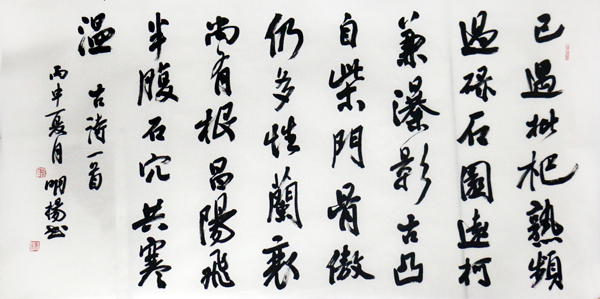 已過枇杷熟頻
過碌石園遠柯
兼瀑影古凸
自柴門骨傲
仍多性蘭衰
尚有根昌陽飛
半腹石穴共寒
溫 古詩一首
丙申夏月 明揚书